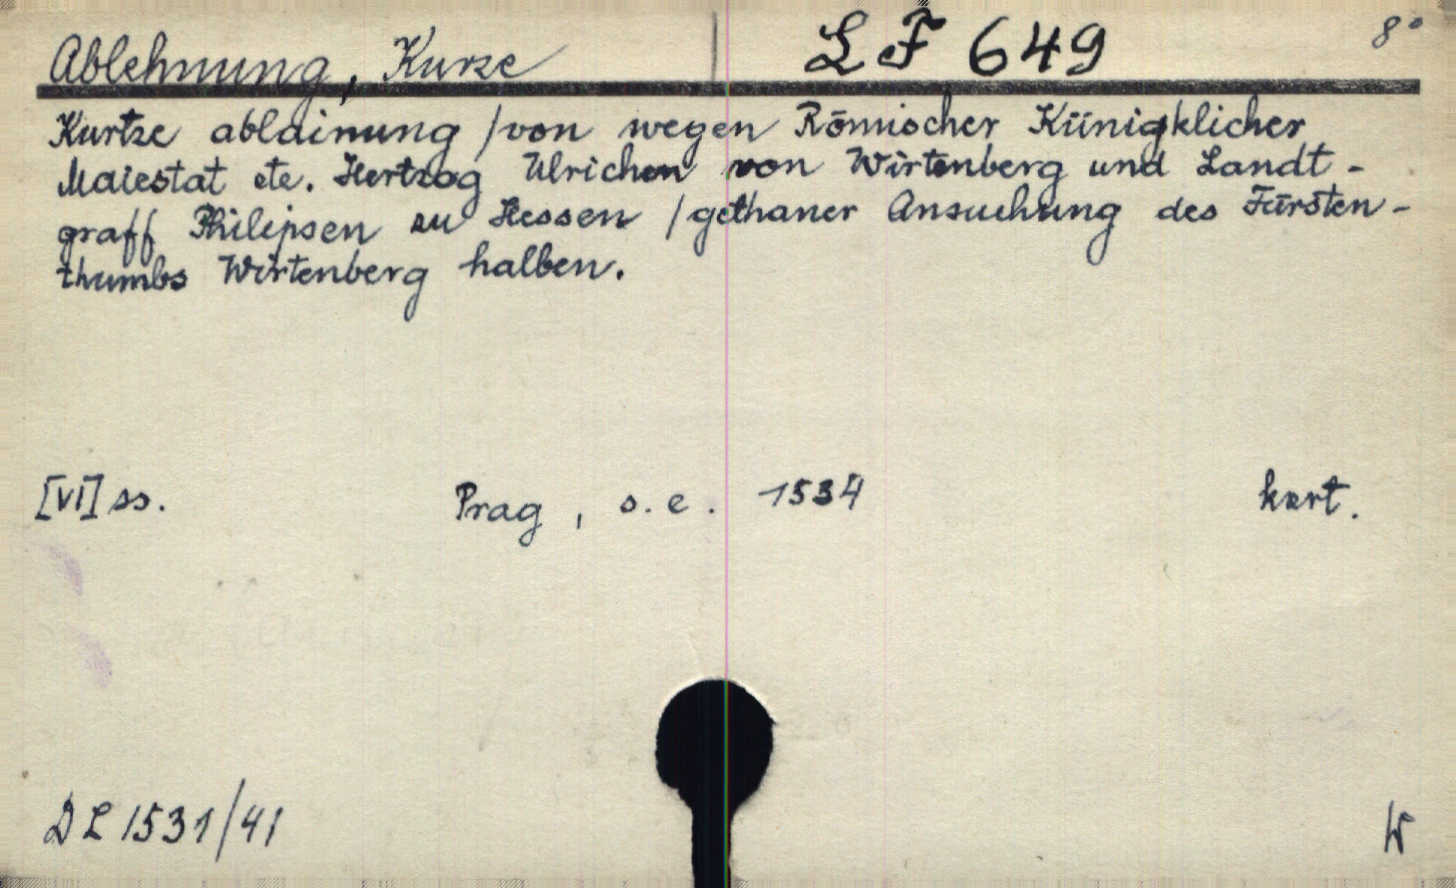 Ablehnung, Kurze
LF 649
8°
Kurtze ablainung / von wegen Römischer Künigklicher
Maiestat etc. Hertzog Ulrichen von Wirtenberg und Landt-
graff Philipsen zu Hessen / gethaner Ansuchung des Fürsten-
thumbs Wirtenberg halben.
[VI] ss.
Prag, s. e. 1534
kart.
DL 1531/41
W